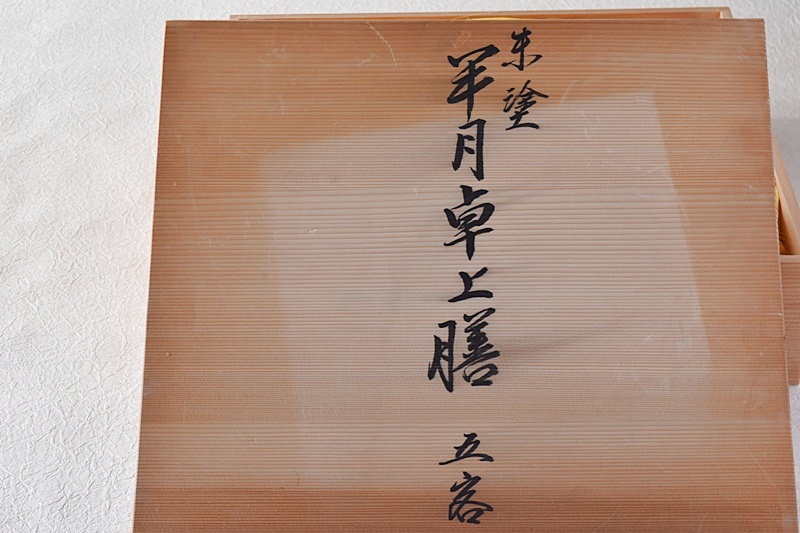 朱塗
半月卓上膳 五客